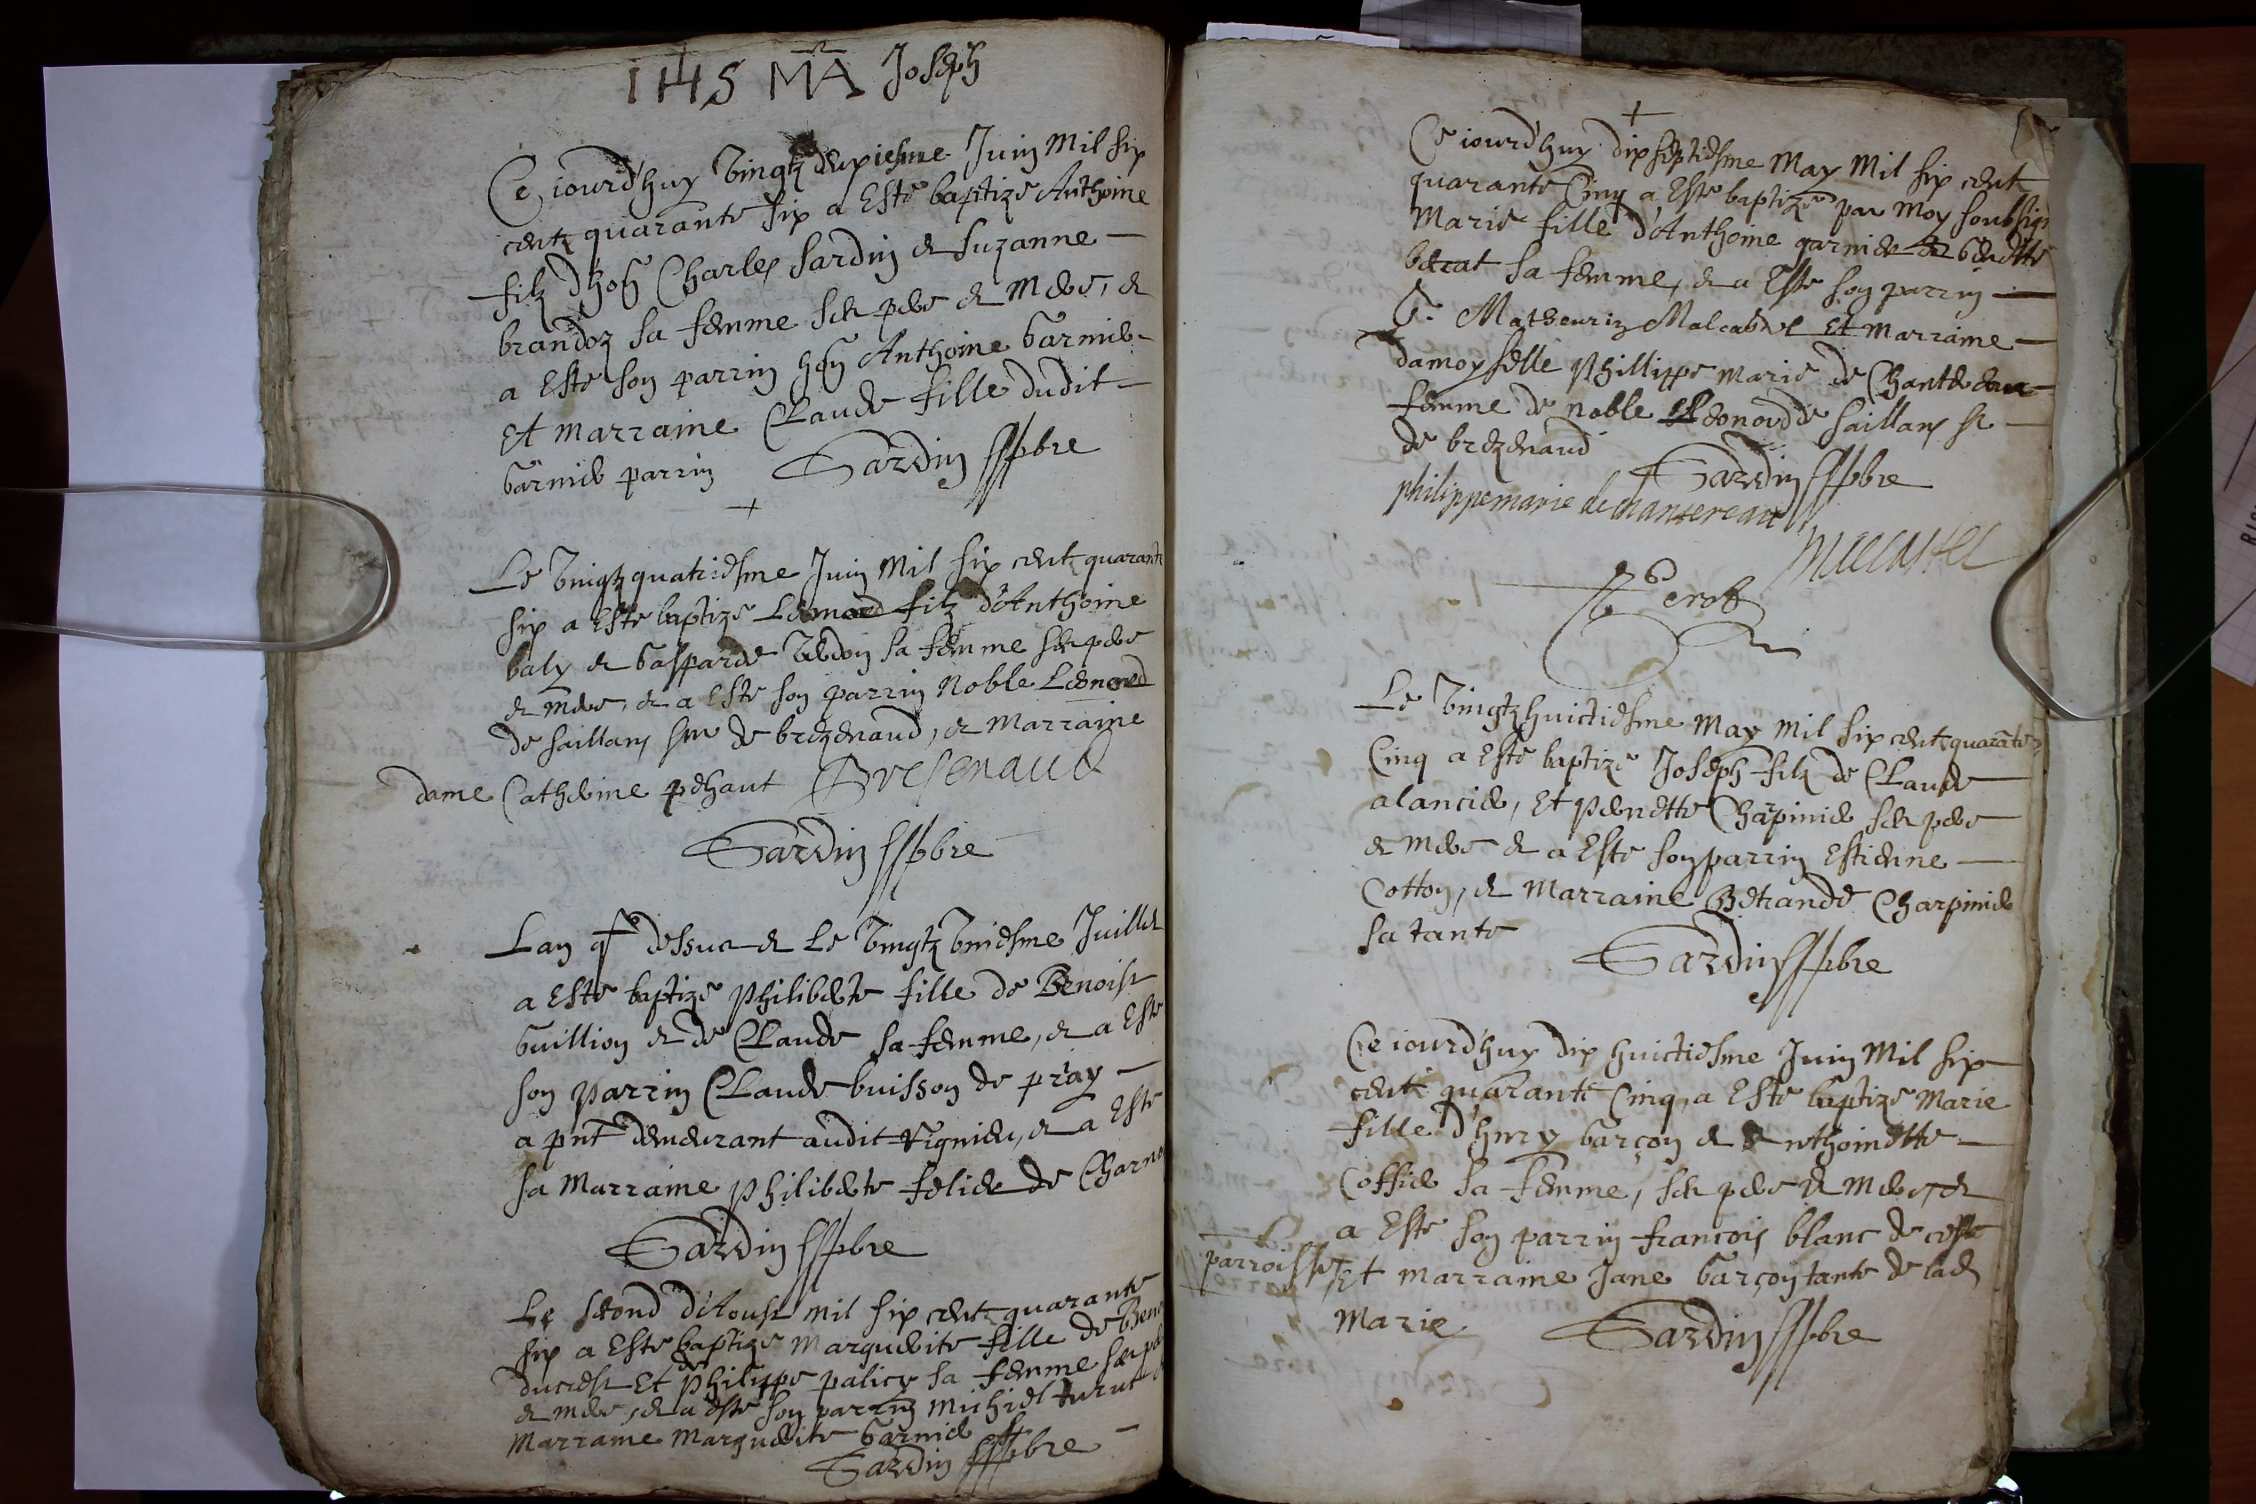 IHS MA Joseph
Ce iourdhuy vingtz deuxiesme Juin mil six
centz quarante six a esté baptizé Anthoine
filz dhon Charles Sardin et Suzanne
brandon sa femme ses pere et mere, et
a esté son parrin hon Anthoine Garnier
Et marraine Claude fille dudit
Garnier parrin Sardin pbre
Le vingtz quatriesme Juin mil six centz quarante
six a esté baptizé Leonard filz d'Anthoine
baly et Gasparde verdon sa femme ses pere
et mere, et a esté son parrin Noble Leonard
de saillans sr de brezenaud, et Marraine
dame Catherine pehaut Bresenaud
Sardin pbre
Lan q dessus et le vingtz uniesme Juillet
a esté baptizé Philiberte fille de Benoist
Guillion et de Claude sa femme, et a esté
son parrin Claude buisson de pray
a pnt demeurant audit Vignieu, et a esté
sa Marraine Philiberte felier de
Sardin pbre
Le second d'Aoust mil six centz quarante
six a esté baptizé Marguerite fille de
ducrest et de Philippe palicy sa femme ses
et mere, et a esté son parrin michiel turut
Marrame Marguerite Garnier
Sardin pbre
Ce iourd'huy dixseptiesme May mil six cent
quarante Cinq a esté baptizé par moy soubsig
Marie fille d'Anthoine garnier et benoitte
berat sa femme, et a esté son parrin
Sr Matheurin Malcabel Et marraine
damoyselle Phillippe marie de Chantereau
femme de noble Leonord de saillans sr
de brezenaud Sardin pbre
philippe marie de chantereau
Perot
Le vingtz huictiesme May mil six centz quarāte
Cinq a esté baptizé Joseph filz de Claude
alancier, Et Pernette Charpinier ses pere
et mere et a esté son parrin Estienne
Cotton, et Marraine Betrande Charpinier
sa tante
Sardin pbre
Ce iourd'huy dix huictiesme Juin mil six
cent quarante Cinq, a esté baptizé Marie
fille d'hnry Garçon et Anthoinette
Coffier sa femme, ses pere et mere, et
a esté son parrin françois blanc de ceste
parroisse, Et marraine Jane Garçon tante de lad
Marie
Sardin pbre